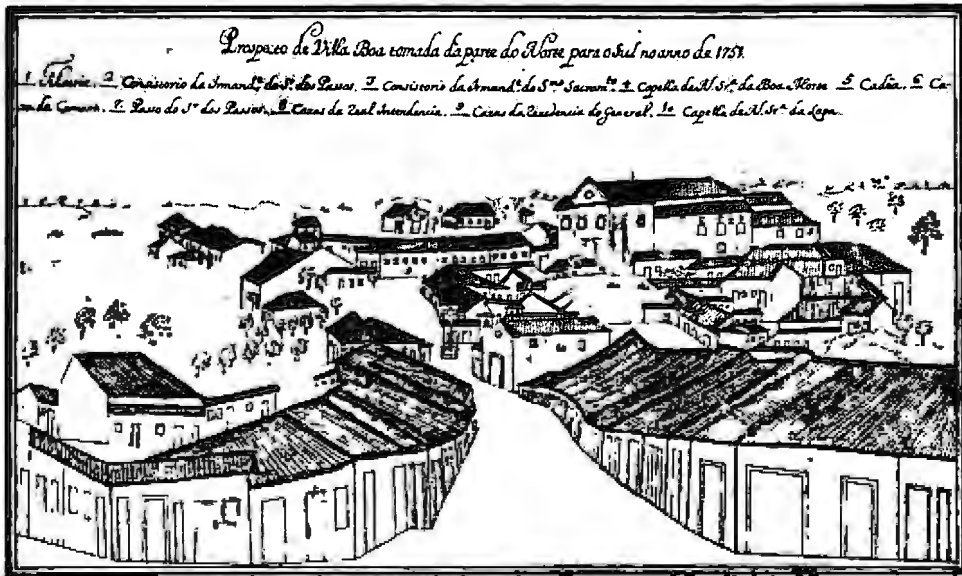 Prospeto de Villa Boa tomada da parte do Norte para o Sul no anno de 1751.
1 Matris. 2 Consistorio da Irmand.ᵉ do S.ʳ dos Passos. 3 Consistorio da Irmand.ᵉ do S.ᵐᵒ Sacram.ᵗᵒ 4 Capella de N. Sr.ᵃ da Boa Morte 5 Cadêa. 6 Ca-
za da Camera. 7 Passo do S.ʳ dos Passos. 8 Cazas da Real Intendencia. 9 Cazas da Rezidencia do General. 10 Capella de N. Sr.ᵃ da Lapa.